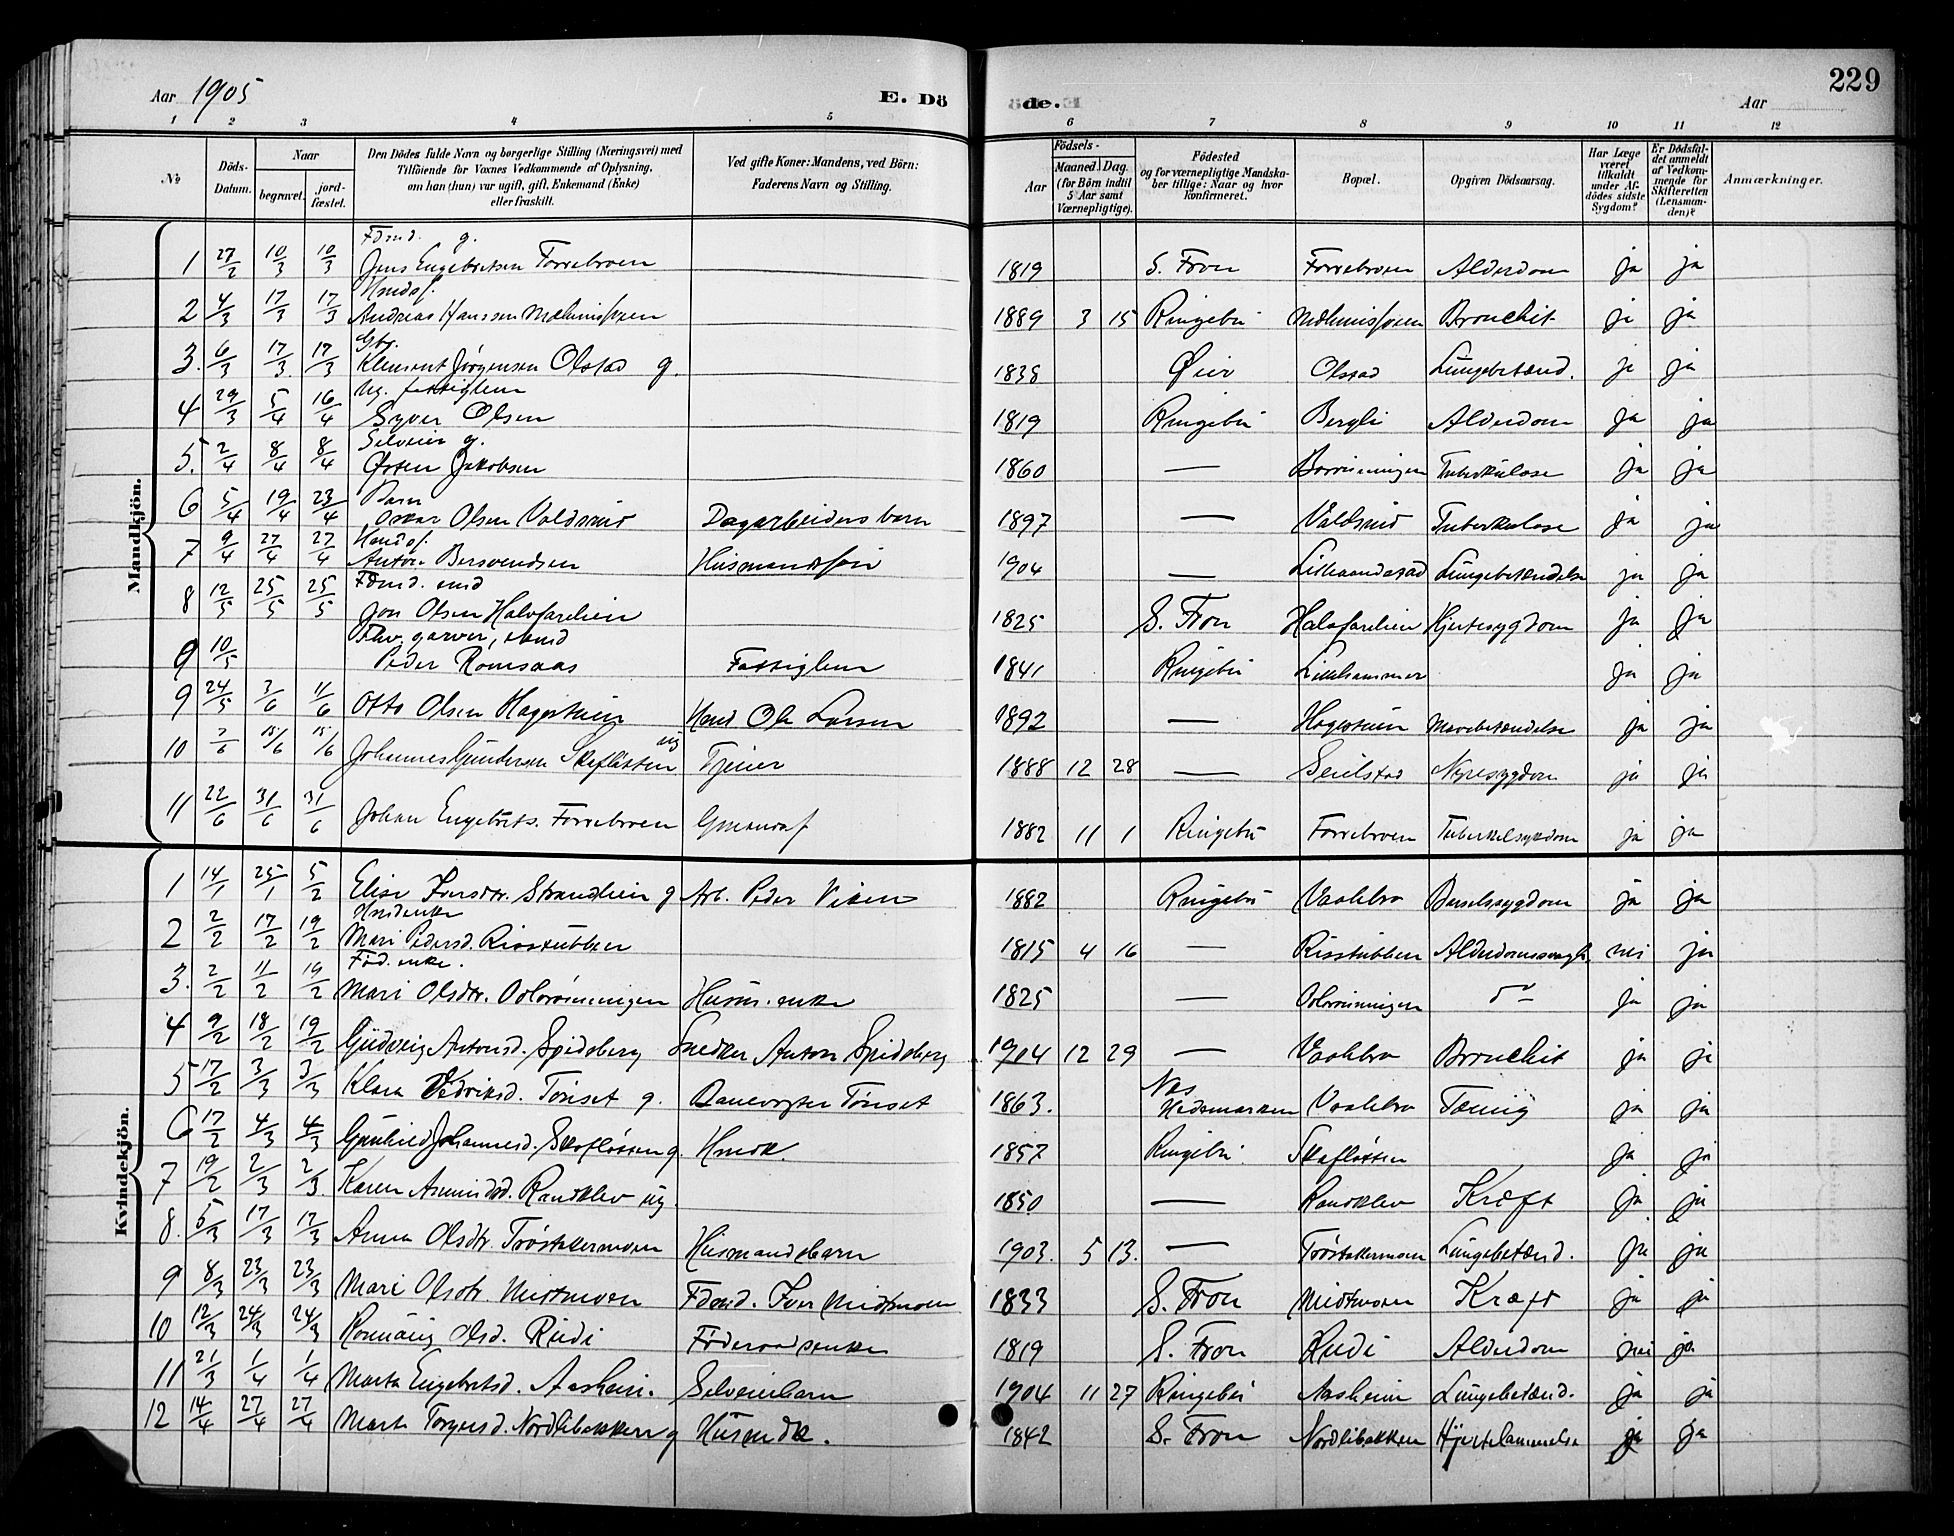 Aar 1905 E. Döde. Aar 229
1 2 3 4 5 6 7 8 9 10 11 12
No
Döds-Datum.
Naar
begravet.
jord-fæstet.
Den Dödes fulde Navn og borgerlige Stilling (Næringsvei) med
Tilföiende for Voxnes Vedkommende af Oplysning,
om han (hun) var ugift, gift, Enkemand (Enke)
eller fraskilt.
Ved gifte Koner: Mandens, ved Börn:
Faderens Navn og Stilling.
Födsels-
Aar
Maaned. Dag.
(for Börn indtil
5 Aar samt
Værnepligtige).
Födested
og for værnepligtige Mandska-
ber tillige: Naar og hvor
konfirmeret.
Bopæl.
Opgiven Dödsaarsag.
Har Læge
været
tilkaldt
under Af-
dödes sidste
Sygdom?
Er Dödsfal-
det anmeldt
af Vedkom-
mende for
Skifteretten
(Lensman-
den)?
Anmærkninger.
Mandkjön.
1 27/2 10/3 10/3 Fdmd. g. Jens Engebretsen Forrebroen 1819 S. Fron Forrebroen Alderdom ja ja
2 4/3 17/3 17/3 Andreas Hanssen 1889 3 15 Ringebu Bronchit ja ja
3. 6/3 17/3 17/3 Gbr. Klement Jørgensen Olstad g. 1838 Øier Olstad Lungebetænd. ja ja
4 29/3 5/4 16/4 ug. fattiglem Syver Olsen 1819 Ringebu Bergli Alderdom ja ja
5. 2/4 8/4 8/4 Selveier g. Østen Jakobsen 1860 — Tuberkulose ja ja
6 5/4 19/4 23/4 Barn Oskar Olsen Valdsvid Dagarbeiders barn 1897 — Valdsvid Tuberkulose ja ja
7 9/4 27/4 27/4 Anton Bersvendsen Husmandssøn 1904 — Lungebetændelse ja ja
8 12/5 25/5 25/5 Fdmd. emd Jon Olsen Halvfarelien 1825 S. Fron Halvfarelien Hjertesygdom ja ja
9 10/5 garver, emd Peder Romsaas Fattiglem 1841 Ringebu Lillehammer ja ja
9 24/5 3/6 11/6 Otto Olsen Hagestuen Hmd Ole Larsen 1892 — Hagestuen Mavebetændelse ja ja
10 7/6 15/6 15/6 Johannes Gundersen Skafløtten ug Tjener 1888 12 28 — Seielstad Nyresygdom ja ja
11 22/6 31/6 31/6 Johan Engebrets. Forrebroen Gmandsf 1882 11 1 Ringebu Forrebroen Tuberkelsykdom ja ja
Kvindekjön.
1 14/1 25/1 5/2 Elise Iversdr. Strandlien g Arb. Peder Viken 1882 Ringebu Vaalebro Barselssygdom ja ja
2 2/2 17/2 19/2 Hmdenke Mari Pedersd. Risstubben 1815 4 16 — Risstubben nei ja
3. 2/2 11/2 19/2 Fød. enke. Mari Olsdtr. Husm. enke 1825 — do ja ja
4 9/2 18/2 19/2 Gudveig Antonsd. Spidsberg Snedker Anton Spidsberg 1904 12 29 — Vaalebro Bronchit ja ja
5 17/2 3/3 3/3 Klara Tønset g. Banevogter Tønset 1863. Nes Hedemarken Vaalebro Tæring ja ja
6 17/2 4/3 4/3 Gunhild Johannesd. Skafløtten g. Hmdk. 1857 Ringebu. Skafløtten ja ja
7 19/2 2/3 2/3. Karen Randklev ug. 1850 — Randklev Kræft ja ja
8. 5/3 17/3 17/3 Anna Olsdtr. Trøstakermoen Husmandsbarn 1903. 5 13. — Trøstakermoen Lungebetænd. ja ja
9 8/3 23/3 23/3 Mari Olsdtr. Midtmoen Fdmd. Iver Midtmoen 1833 S. Fron Midtmoen Kræft ja ja
10 12/3 24/3 24/3 Rønnaug Olsd. Rudi Føderaadsenke 1819 S. Fron Rudi Alderdom nei ja
11 21/3 1/4 1/4 Marta Engebretsd. Aasheim. Selveierbarn 1904 11 27 Ringebu Aasheim Lungebetænd. ja ja
12 14/4 27/4 27/4 Marte Torgersd. Nordlibakken g Husmdk. 1842 S. Fron Nordlibakken Hjertelammelse ja ja